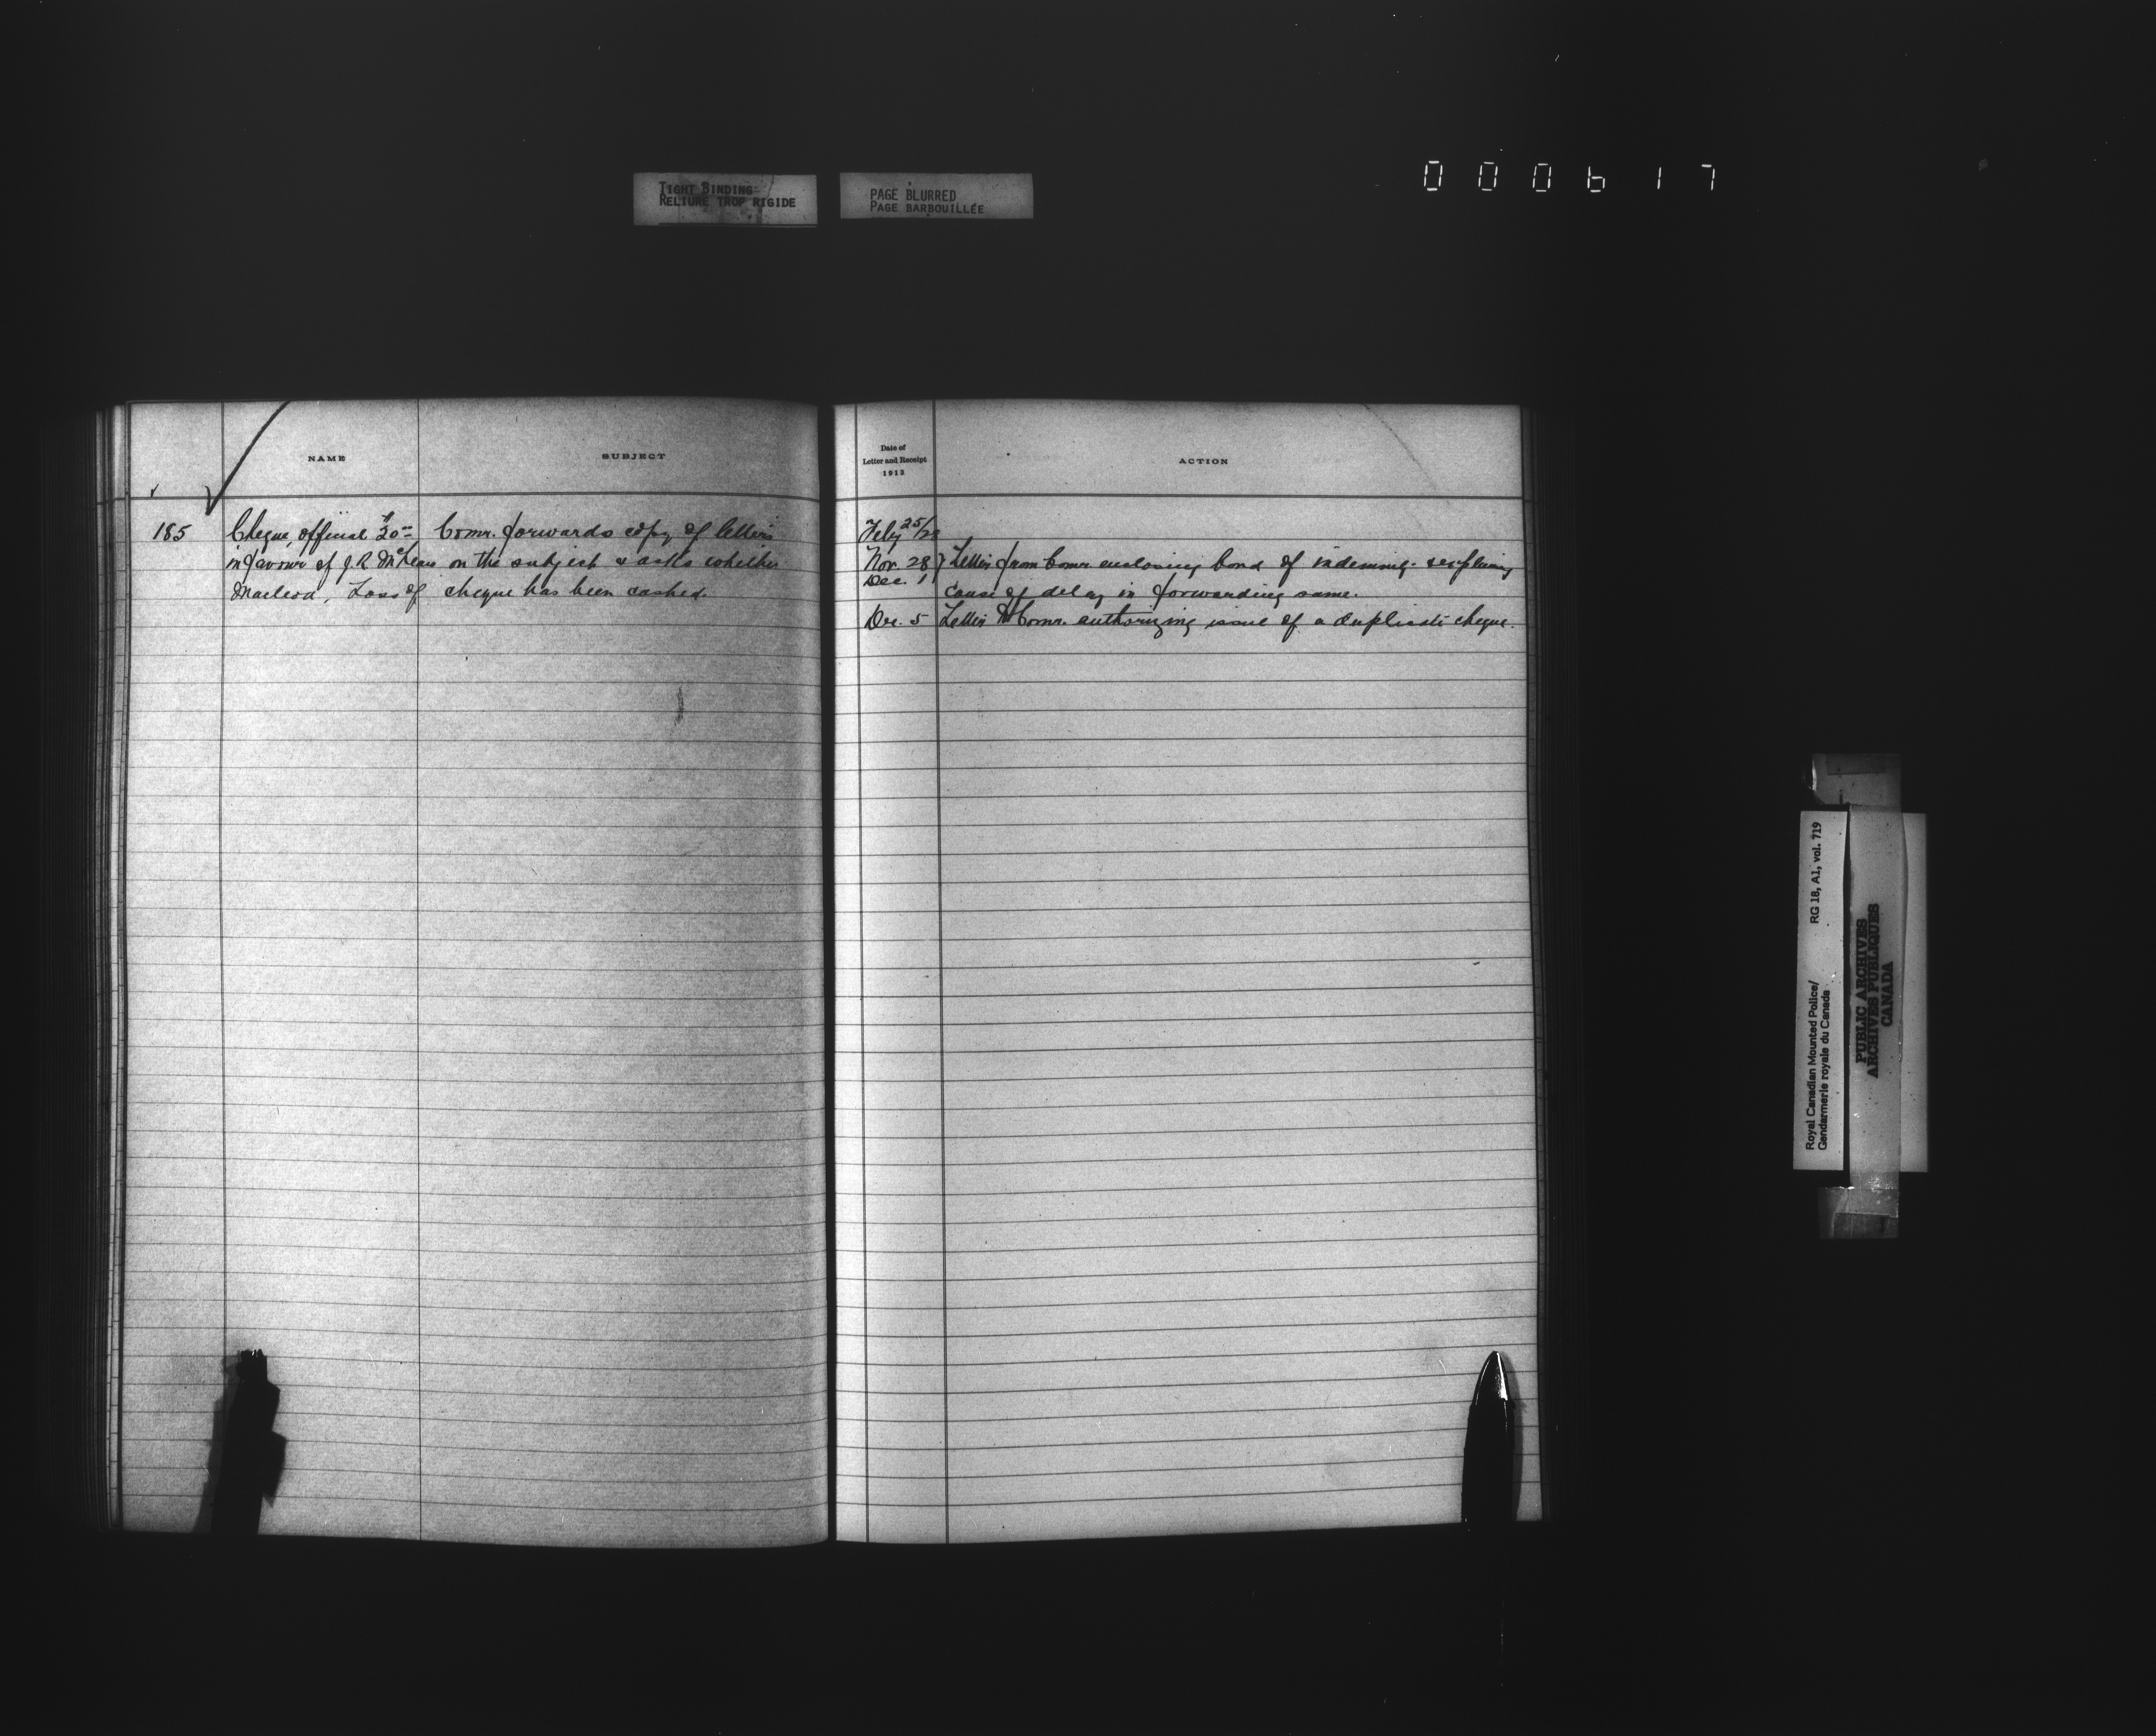 TIGHT BINDING
RELIURE TROP RIGIDE
PAGE BLURRED
PAGE BARBOUILLÉE
000617
NAME
SUBJECT
185
Cheque, official $30=
in favour of J.R. McLean
Macleod, Loss of
Comr. forwards copy of letters
on the subject & asks whether
cheque has been cashed.
Date of
Letter and Receipt
1913
ACTION
Feby 25/28
Nov. 28 } Letter from Comr. enclosing bond of indemnity & explaining
Dec. 1
cause of delay in forwarding same.
Dec. 5 Letter to Comr. authorizing issue of a duplicate cheque.
Royal Canadian Mounted Police/
Gendarmerie royale du Canada
RG 18, A1, vol. 719
PUBLIC ARCHIVES
ARCHIVES PUBLIQUES
CANADA